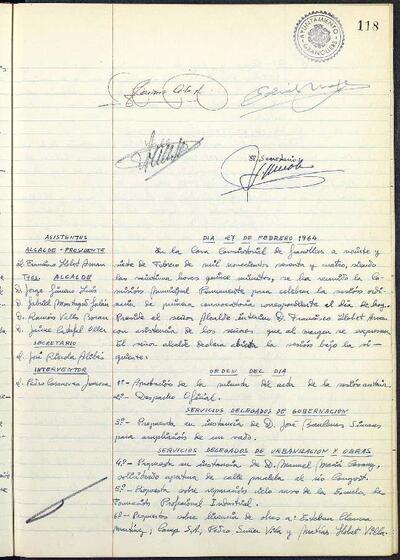 118
AYUNTAMIENTO
GRANOLLERS
El Secretario
ASISTENTES
ALCALDE-PRESIDENTE
D. Francisco Llobet Arnan
Ttes. ALCALDE
D. Jorge Jimeno Luis
D. Gabriel
D. Ramón Valls
D. Jaime
SECRETARIO
D. José Rierola
INTERVENTOR
D. Pedro Casanovas
DIA 27 DE FEBRERO 1964
En la Casa Consistorial de Granollers a veinte y
siete de Febrero de mil novecientos sesenta y cuatro, siendo
las veintiuna horas quince minutos, se ha reunido la Co-
misión Municipal Permanente para celebrar la sesión ordi-
naria de primera convocatoria correspondiente al día de hoy.
Preside el señor Alcalde interino D. Francisco Llobet Arnan
con asistencia de los señores que al margen se expresan.
El señor alcalde declara abierta la sesión bajo la si-
guiente.
ORDEN DEL DIA
1º- Aprobación de la minuta del acta de la sesión anterior
2º- Despacho Oficial.
SERVICIOS DELEGADOS DE GOBERNACION
3º- Propuesta en instancia de D. José
para ampliación de un vado.
SERVICIOS DELEGADOS DE URBANIZACION Y OBRAS
4º- Propuesta en instancia de D. Manuel María
solicitando apertura de calle paralela al río Congost.
5º- Propuesta sobre reparación cielo raso de la Escuela de
Formación Profesional Industrial.
6º- Propuestas sobre licencia de obras a: Esteban
Martínez, Camp S.A., Pedro Vila y Matías Llobet Villa-